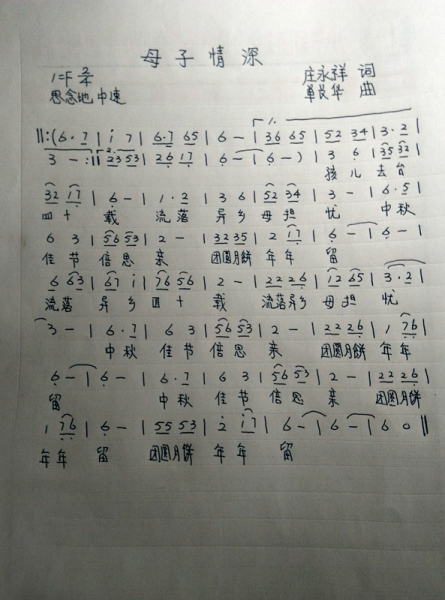 母子情深
1=F 2/4 庄永祥 词
思念地 中速 单良华 曲
‖:(6·7 | i 7 | 67 65 | 6 - | 1. 36 65 | 52 34 | 3·2 |
3 - :‖ 2. 23 53 | 26 17 | 6 - | 6 -) | 3 6 | 35 32 |
孩儿去台
32 17 | 6 - | 1·2 | 3 6 | 52 34 | 3 - | 6·5 |
四十载 流落异乡母担忧 中秋
6 3 | 56 53 | 2 - | 32 35 | 2 17 | 6 - | 6 - |
佳节倍思亲 团圆月饼年年留
6 63 | 67 i | 76 56 | 2 - | 22 26 | 12 65 | 3·2 |
流落异乡四十载 流落异乡母担忧
3 - | 6·7 | 6 3 | 56 53 | 2 - | 22 26 | 1 76 |
中秋佳节倍思亲 团圆月饼年年
6 - | 6 - | 6·7 | 6 3 | 56 53 | 2 - | 22 26 |
留 中秋佳节倍思亲 团圆月饼
1 76 | 6 - | 55 53 | 2 17 | 6 - | 6 - | 6 0 ‖
年年留 团圆月饼年年留